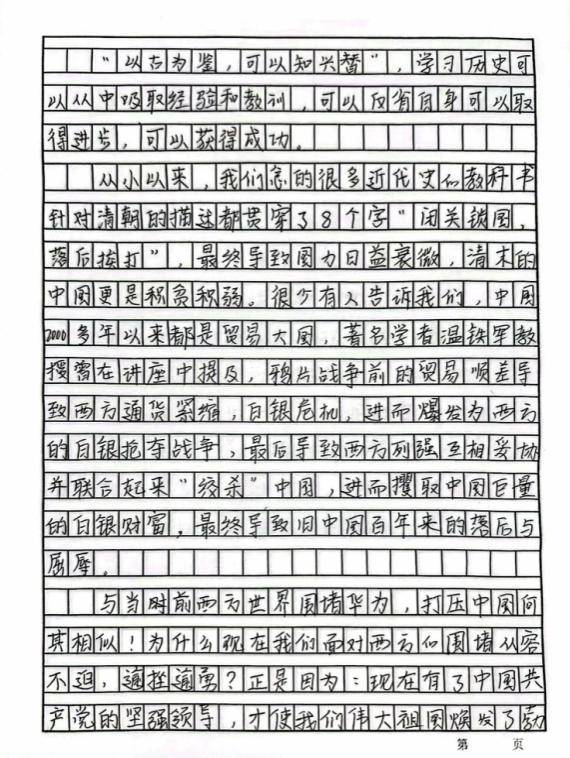 “以古为鉴，可以知兴替”，学习历史可
以从中吸取经验和教训，可以反省自身可以取
得进步，可以获得成功。
从小以来，我们念的很多近代史的教科书
针对清朝的描述都贯穿了8个字“闭关锁国，
落后挨打”，最终导致国力日益衰微，清末的
中国更是积贫积弱。很少有人告诉我们，中国
2000多年以来都是贸易大国，著名学者温铁军教
授曾在讲座中提及，鸦片战争前的贸易顺差导
致西方通货紧缩，白银危机，进而爆发为西方
的白银抢夺战争，最后导致西方列强互相妥协
并联合起来“绞杀”中国，进而攫取中国巨量
的白银财富，最终导致旧中国百年来的落后与
屈辱。
与当时前西方世界围堵华为，打压中国何
其相似！为什么现在我们面对西方们围堵从容
不迫，逾挫逾勇？正是因为：现在有了中国共
产党的坚强领导，才使我们伟大祖国焕发了勃
第 页